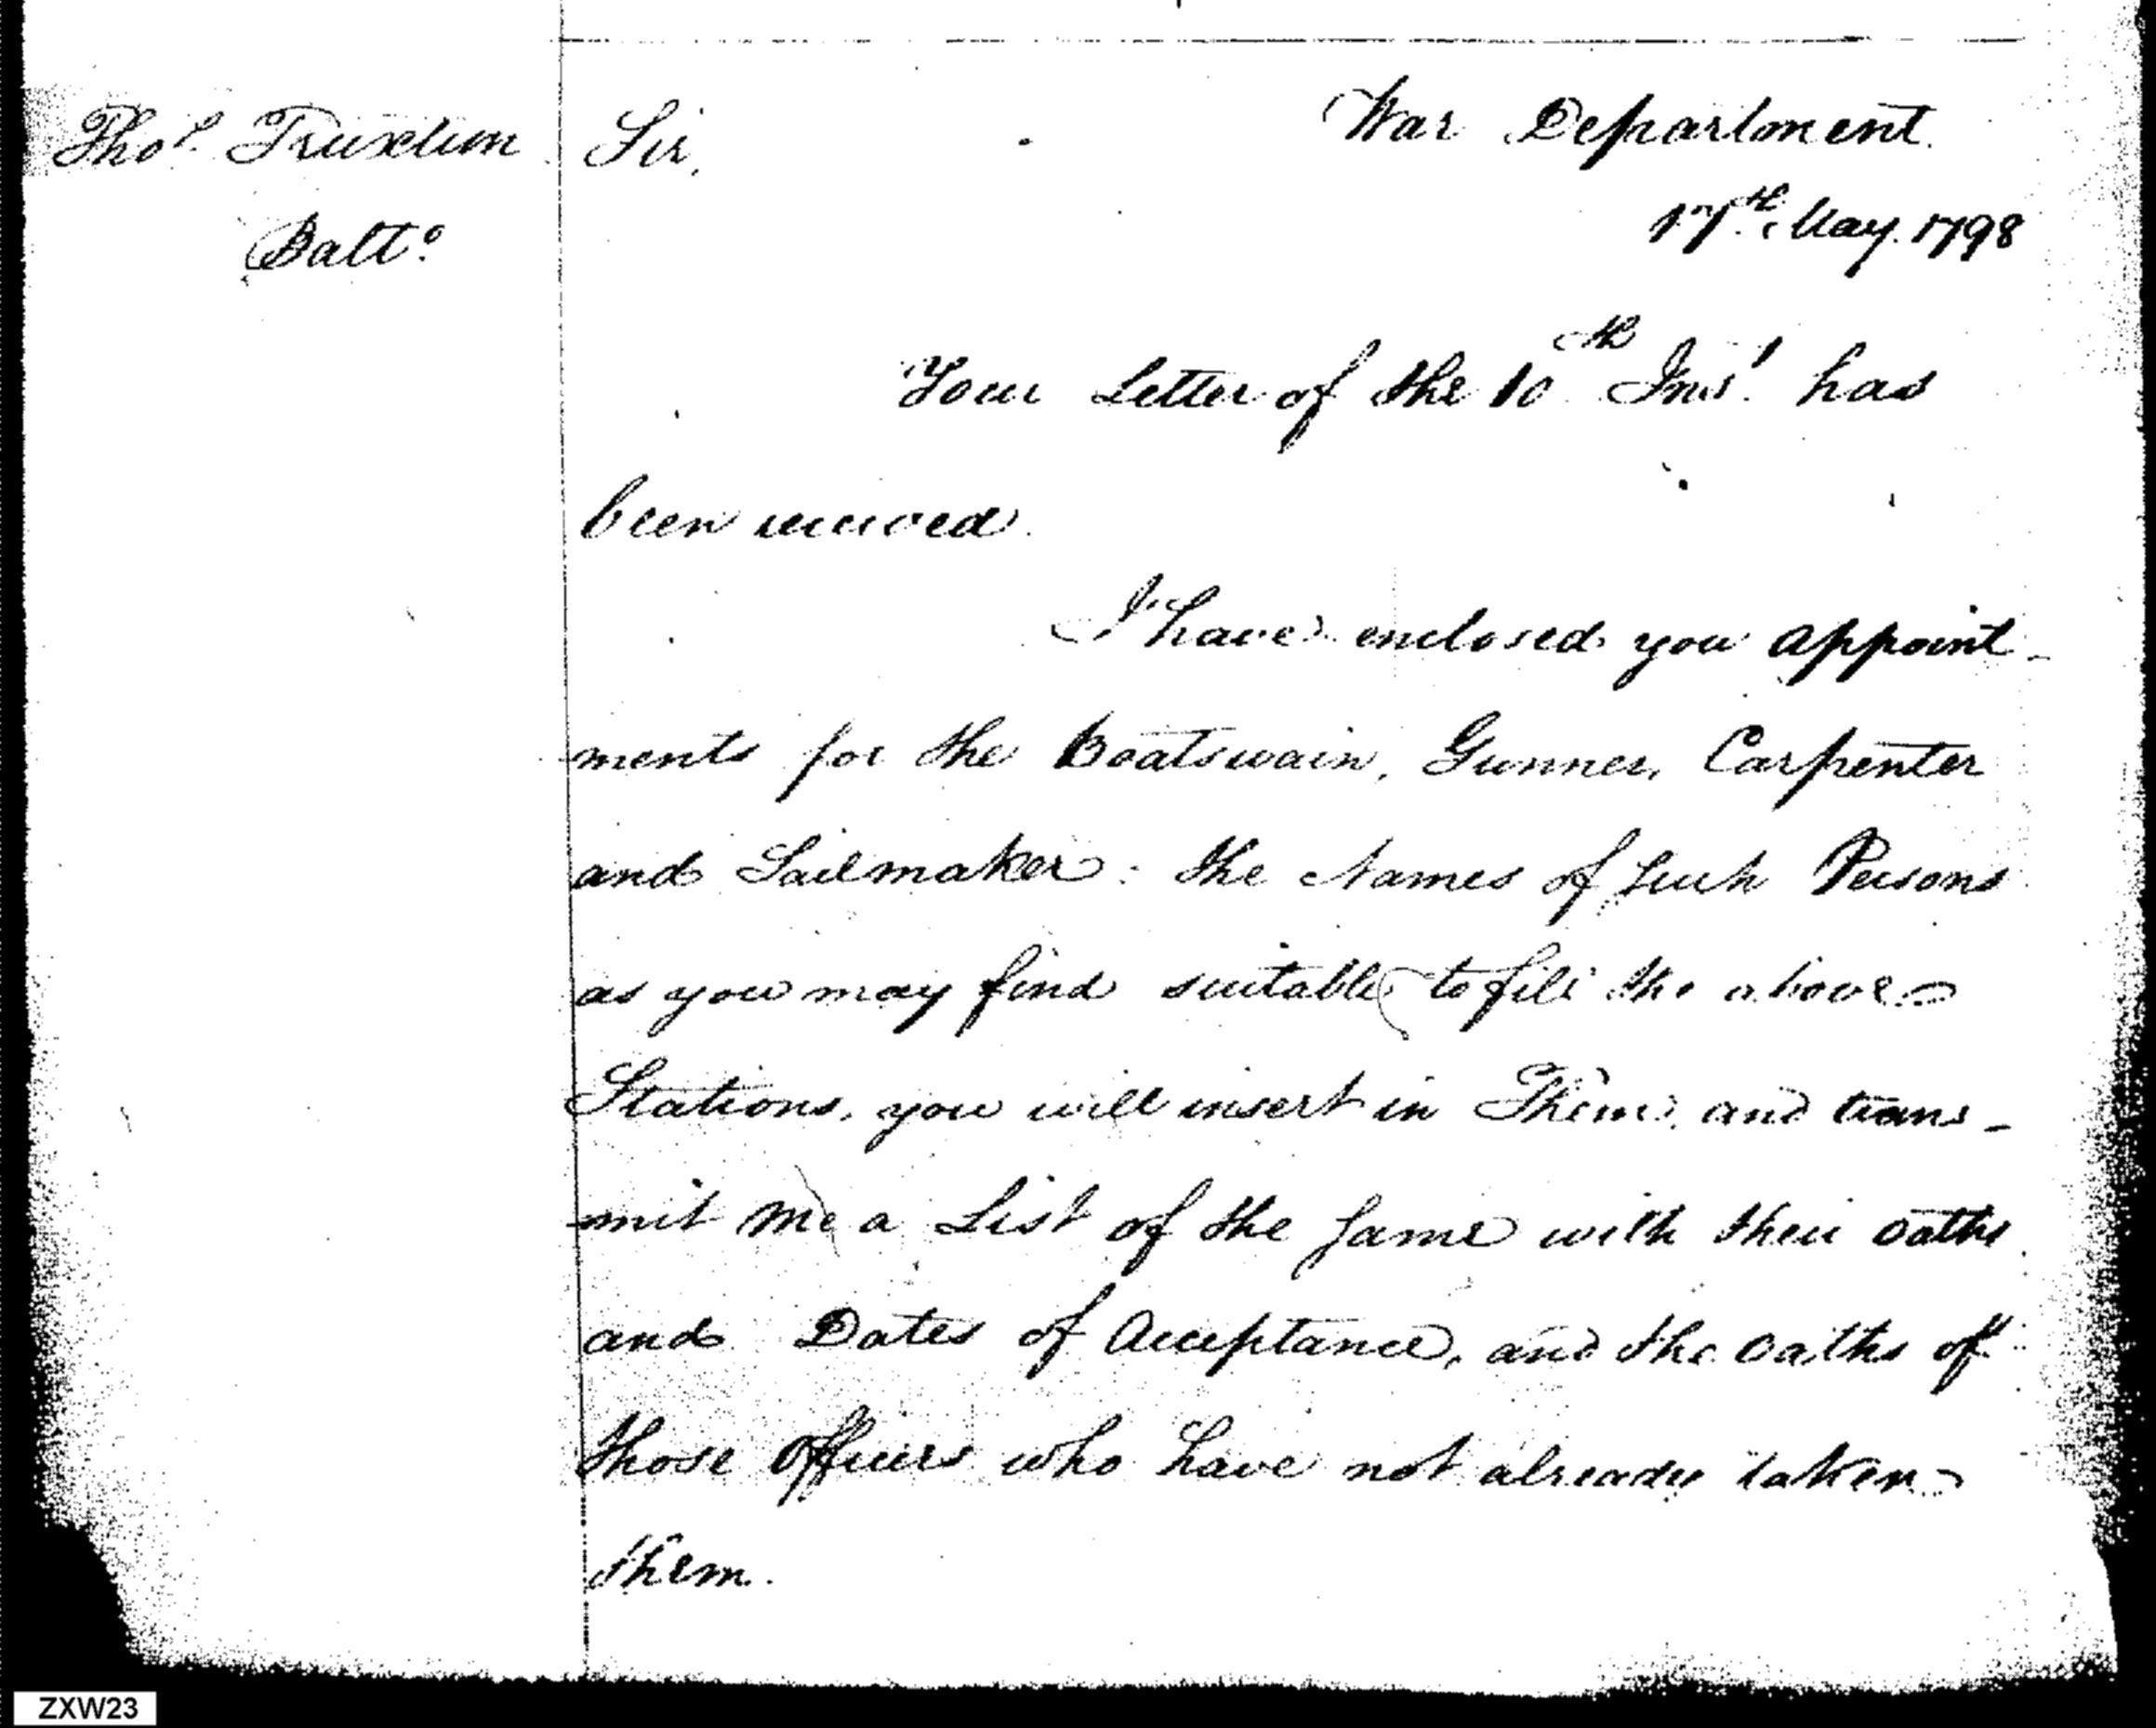 Thos. Truxtun
Balto.
Sir,
War Department.
17th. May. 1798
Your Letter of the 10th Inst. has
been received.
I have enclosed you appoint-
ments for the Boatswain, Gunner, Carpenter
and Sailmaker: the Names of such Persons
as you may find suitable to fill the above
Stations, you will insert in Them, and trans-
mit me a List of the same with their oaths
and Dates of Acceptance, and the oaths of
those officers who have not already taken
them.
ZXW23